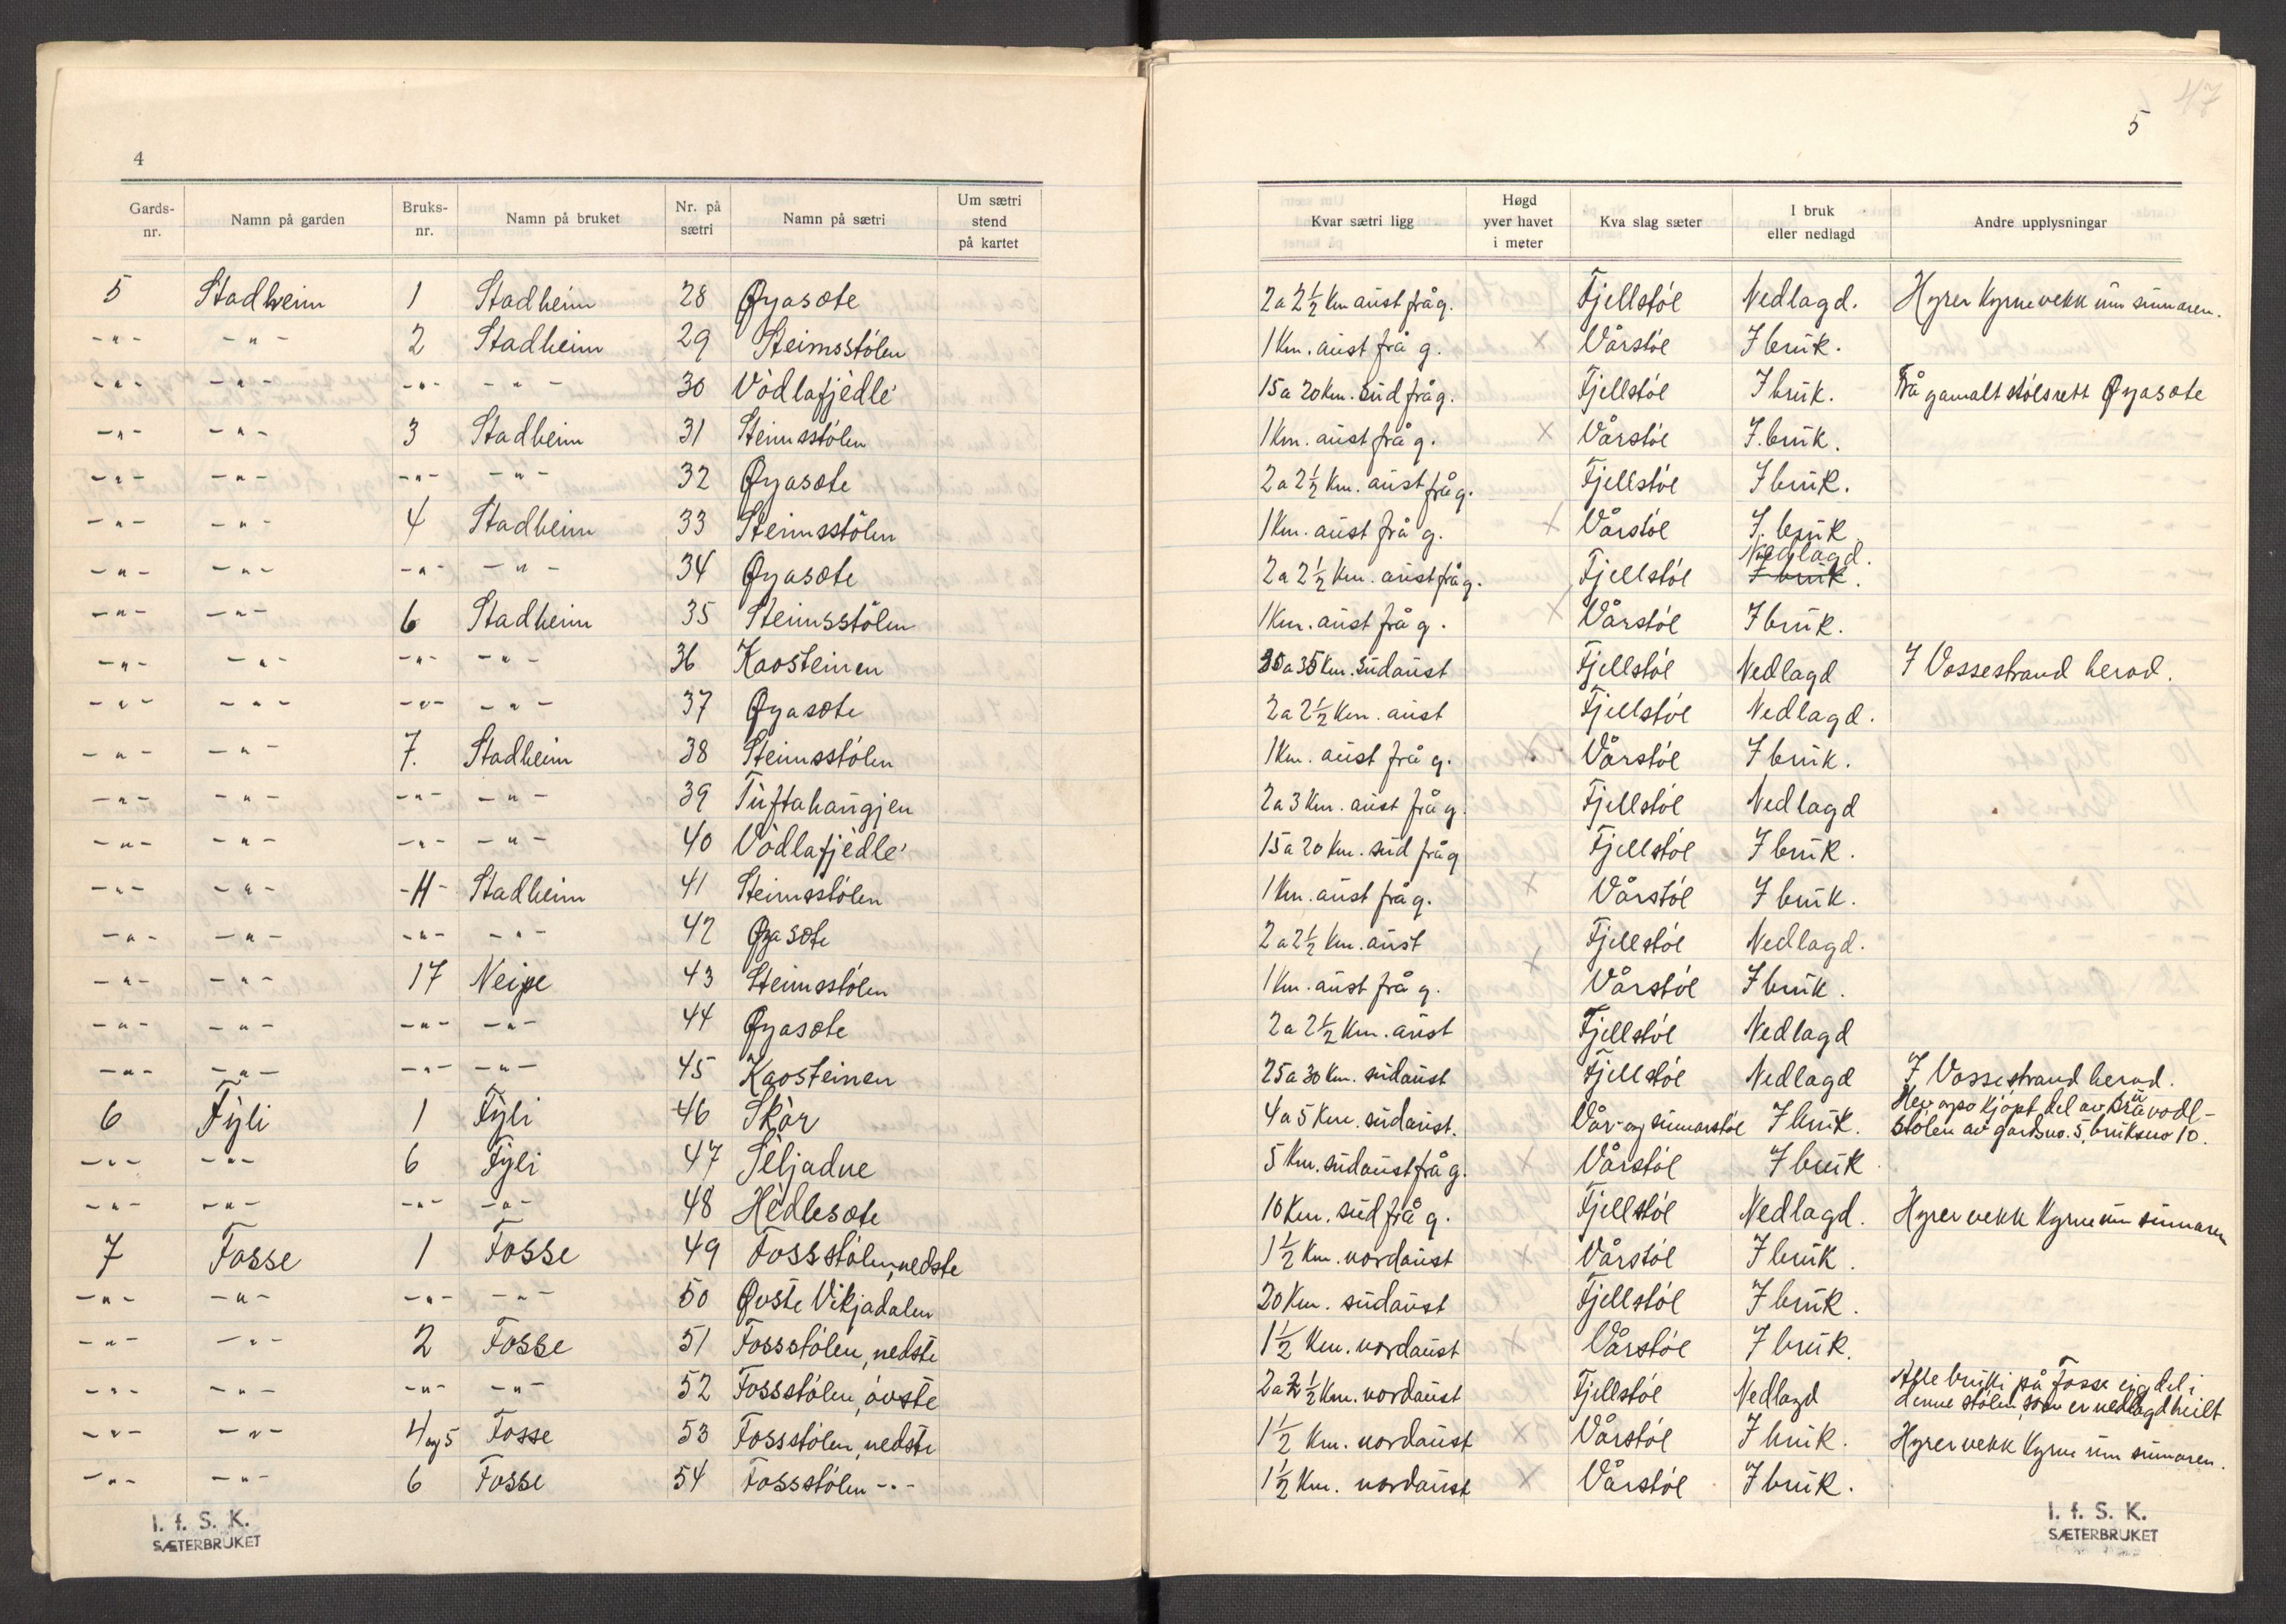 4
Gards-nr. Namn på garden Bruks-nr. Namn på bruket Nr. på sætri Namn på sætri Um sætri stend på kartet
5 Stadheim 1 Stadheim 28 Øyasote
-"- -"- 2 Stadheim 29 Steimsstólen
-"- -"- -"- -"- 30 Vòdlafjèdlé
-"- -"- 3 Stadheim 31 Steimsstólen
-"- -"- -"- -"- 32 Øyasote
-"- -"- 4 Stadheim 33 Steimsstólen
-"- -"- -"- -"- 34 Øyasote
-"- -"- 6 Stadheim 35 Steimsstólen
-"- -"- -"- -"- 36 Kaosteinen
-"- -"- -"- -"- 37 Øyasote
-"- -"- 7. Stadheim 38 Steimsstólen
-"- -"- -"- -"- 39 Tuftahaugjen
-"- -"- -"- -"- 40 Vòdlafjèdlé
-"- -"- -11- Stadheim 41 Steimsstólen
-"- -"- -"- -"- 42 Øyasote
-"- -"- 17 Neipe 43 Steimsstólen
-"- -"- -"- -"- 44 Øyasote
-"- -"- -"- -"- 45 Kaosteinen
6 Fyli 1 Fyli 46 Skòr
-"- -"- 6 Fyli 47 Seljadne
-"- -"- -"- -"- 48 Hèdlesote
7 Fosse 1 Fosse 49 Fossstólen, nedste
-"- -"- -"- -"- 50 Øvste Vikjadalen
-"- -"- 2 Fosse 51 Fossstólen, nedste
-"- -"- -"- -"- 52 Fossstólen, óvste
-"- -"- 4 og 5 Fosse 53 Fossstólen, nedste
-"- -"- 6 Fosse 54 Fossstólen -"-
I. f. S. K.
SÆTERBRUKET
47
5
Kvar sætri ligg Høgd yver havet i meter Kva slag sæter I bruk eller nedlagd Andre upplysningar
2 a 2½ Km aust frå g. Fjellstól Nedlagd. Hyrer kyrne vekk um sumaren.
1 Km. aust frå g. x Vårstól I bruk.
15 a 20 Km. sud frå g. Fjellstól I bruk. gamalt stølsrett Øyasote
1 Km. aust frå g. x Vårstól I. bruk.
2 a 2½ Km. aust frå g. Fjellstól I bruk.
1 Km. aust frå g. x Vårstól I. bruk
2 a 2½ Km. aust frå g. Fjellstól I bruk. Nedlagd.
1 Km. aust frå g. x Vårstól I bruk.
30 a 35 Km. sudaust Fjellstól Nedlagd I Vossestrand herad.
2 a 2½ Km. aust Fjellstól Nedlagd.
1 Km. aust frå g. x Vårstól I bruk.
2 a 3 Km. aust frå g. Fjellstól Nedlagd
15 a 20 Km. sud frå g Fjellstól I bruk.
1 Km. aust frå g. x Vårstól I bruk.
2 a 2½ Km. aust Fjellstól Nedlagd.
1 Km. aust frå g. x Vårstól I bruk.
2 a 2½ Km. aust Fjellstól Nedlagd
25 a 30 Km. sudaust Fjellstól Nedlagd I Vossestrand herad.
4 a 5 Km. sudaust. Vår- og sumarstól I bruk. Hev ogso kjøpt del av
stólen av gardsno. 5, bruksno 10.
5 Km. sudaust frå g. x Vårstól I bruk
10 Km. sud frå g. Fjellstól Nedlagd. Hyrer vekk kyrne um sumaren
1½ Km. nordaust x Vårstól I bruk.
20 Km. sudaust Fjellstól I bruk.
1½ Km. nordaust x Vårstól I bruk.
2 a 2½ Km. nordaust Fjellstól Nedlagd Alle bruki på Fosse eig del i
denne stólen, som er nedlagd heilt
1½ Km. nordaust x Vårstól I bruk. Hyrer vekk kyrne um sumaren.
1½ Km. nordaust x Vårstól I bruk.
I. f. S. K.
SÆTERBRUKET